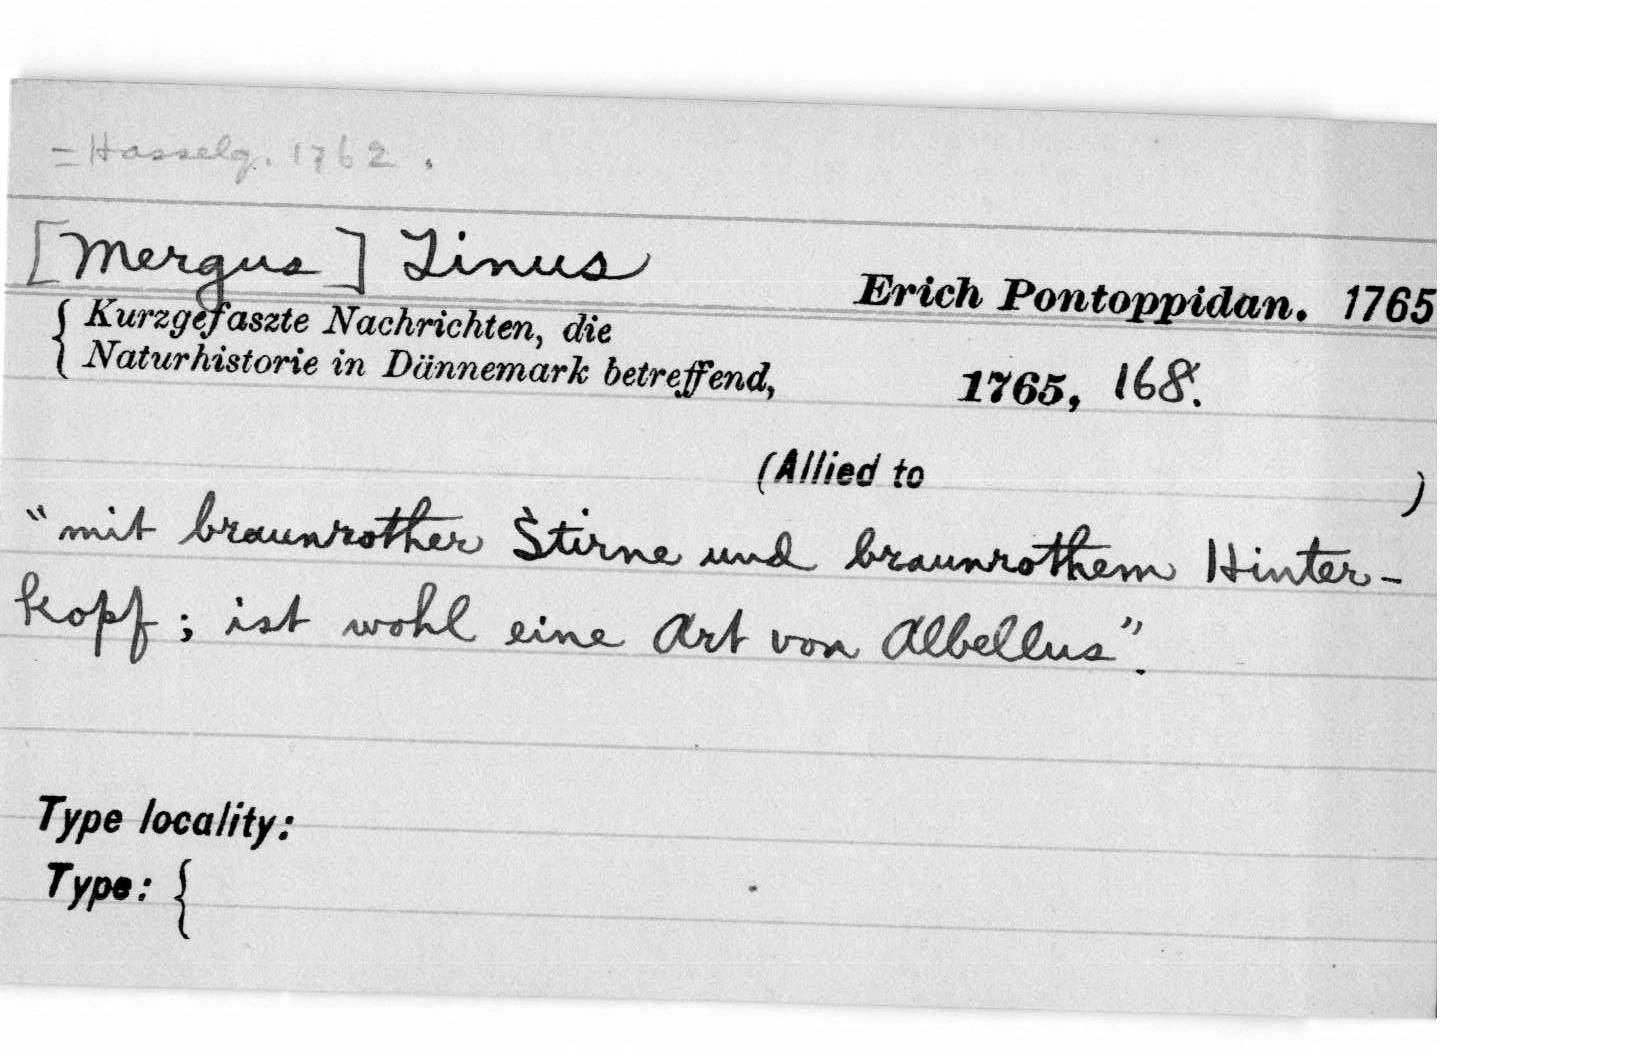 = Hasselq. 1762.
[Mergus] Linus
Erich Pontoppidan. 1765
{ Kurzgefaszte Nachrichten, die
Naturhistorie in Dännemark betreffend,
1765, 168.
(Allied to )
"mit braunrother Stirne und braunrothem Hinter-
kopf; ist wohl eine Art von Albellus".
Type locality:
Type: {